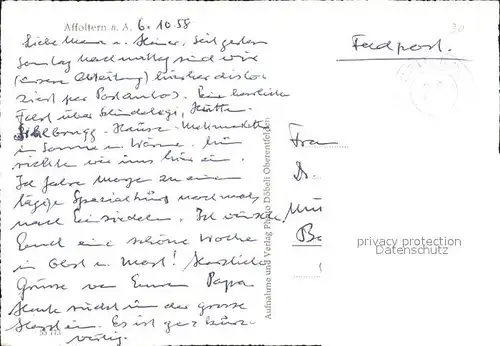 Affoltern a. A. 6.10.58
Liebe Mama u. Heiner, Seit gestern
Sonntag Nachmittag sind wir
(unsere Abteilung) hierher dislo-
ziert per Postautos. Eine herrliche
Fahrt über Schindellegi, Hütten
Sihlbrugg - Hausen - Mettmenstetten
in Sonne u. Wärme. Nun
richten wir uns hier ein.
Ich fahre morgen zu einem
tägigen Spezialkurs nochmals
nach Einsiedeln. Ich wünsche
Euch eine schöne Woche
in Obst u. Most! Herzliche
Grüsse von Eurem Papa
Heute rückt nun der grosse
Harst ein. Es ist ganz kurz-
weilig.
Feldpost.
Frau
Dr.
Mün
Ba
privacy protection
DS AnsichtskartenVersand.com
Aufnahme und Verlag Photo Döbeli Oberentfelden